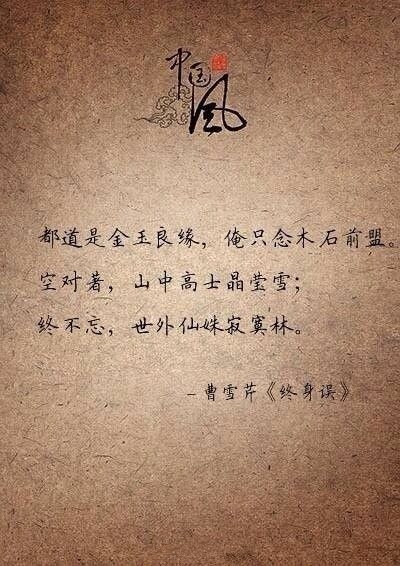 中国风
都道是金玉良缘，俺只念木石前盟。
空对著，山中高士晶莹雪；
终不忘，世外仙姝寂寞林。
–曹雪芹《终身误》